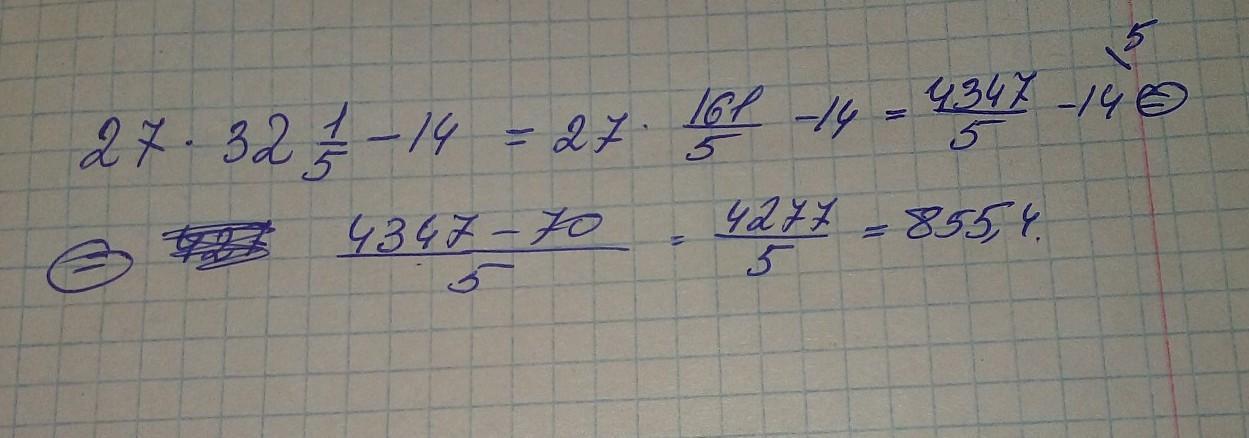 27 · 32 1/5 - 14 = 27 · 161/5 - 14 = 4347/5 - 14 \5 =
= 4347 - 70/5 = 4277/5 = 855,4.